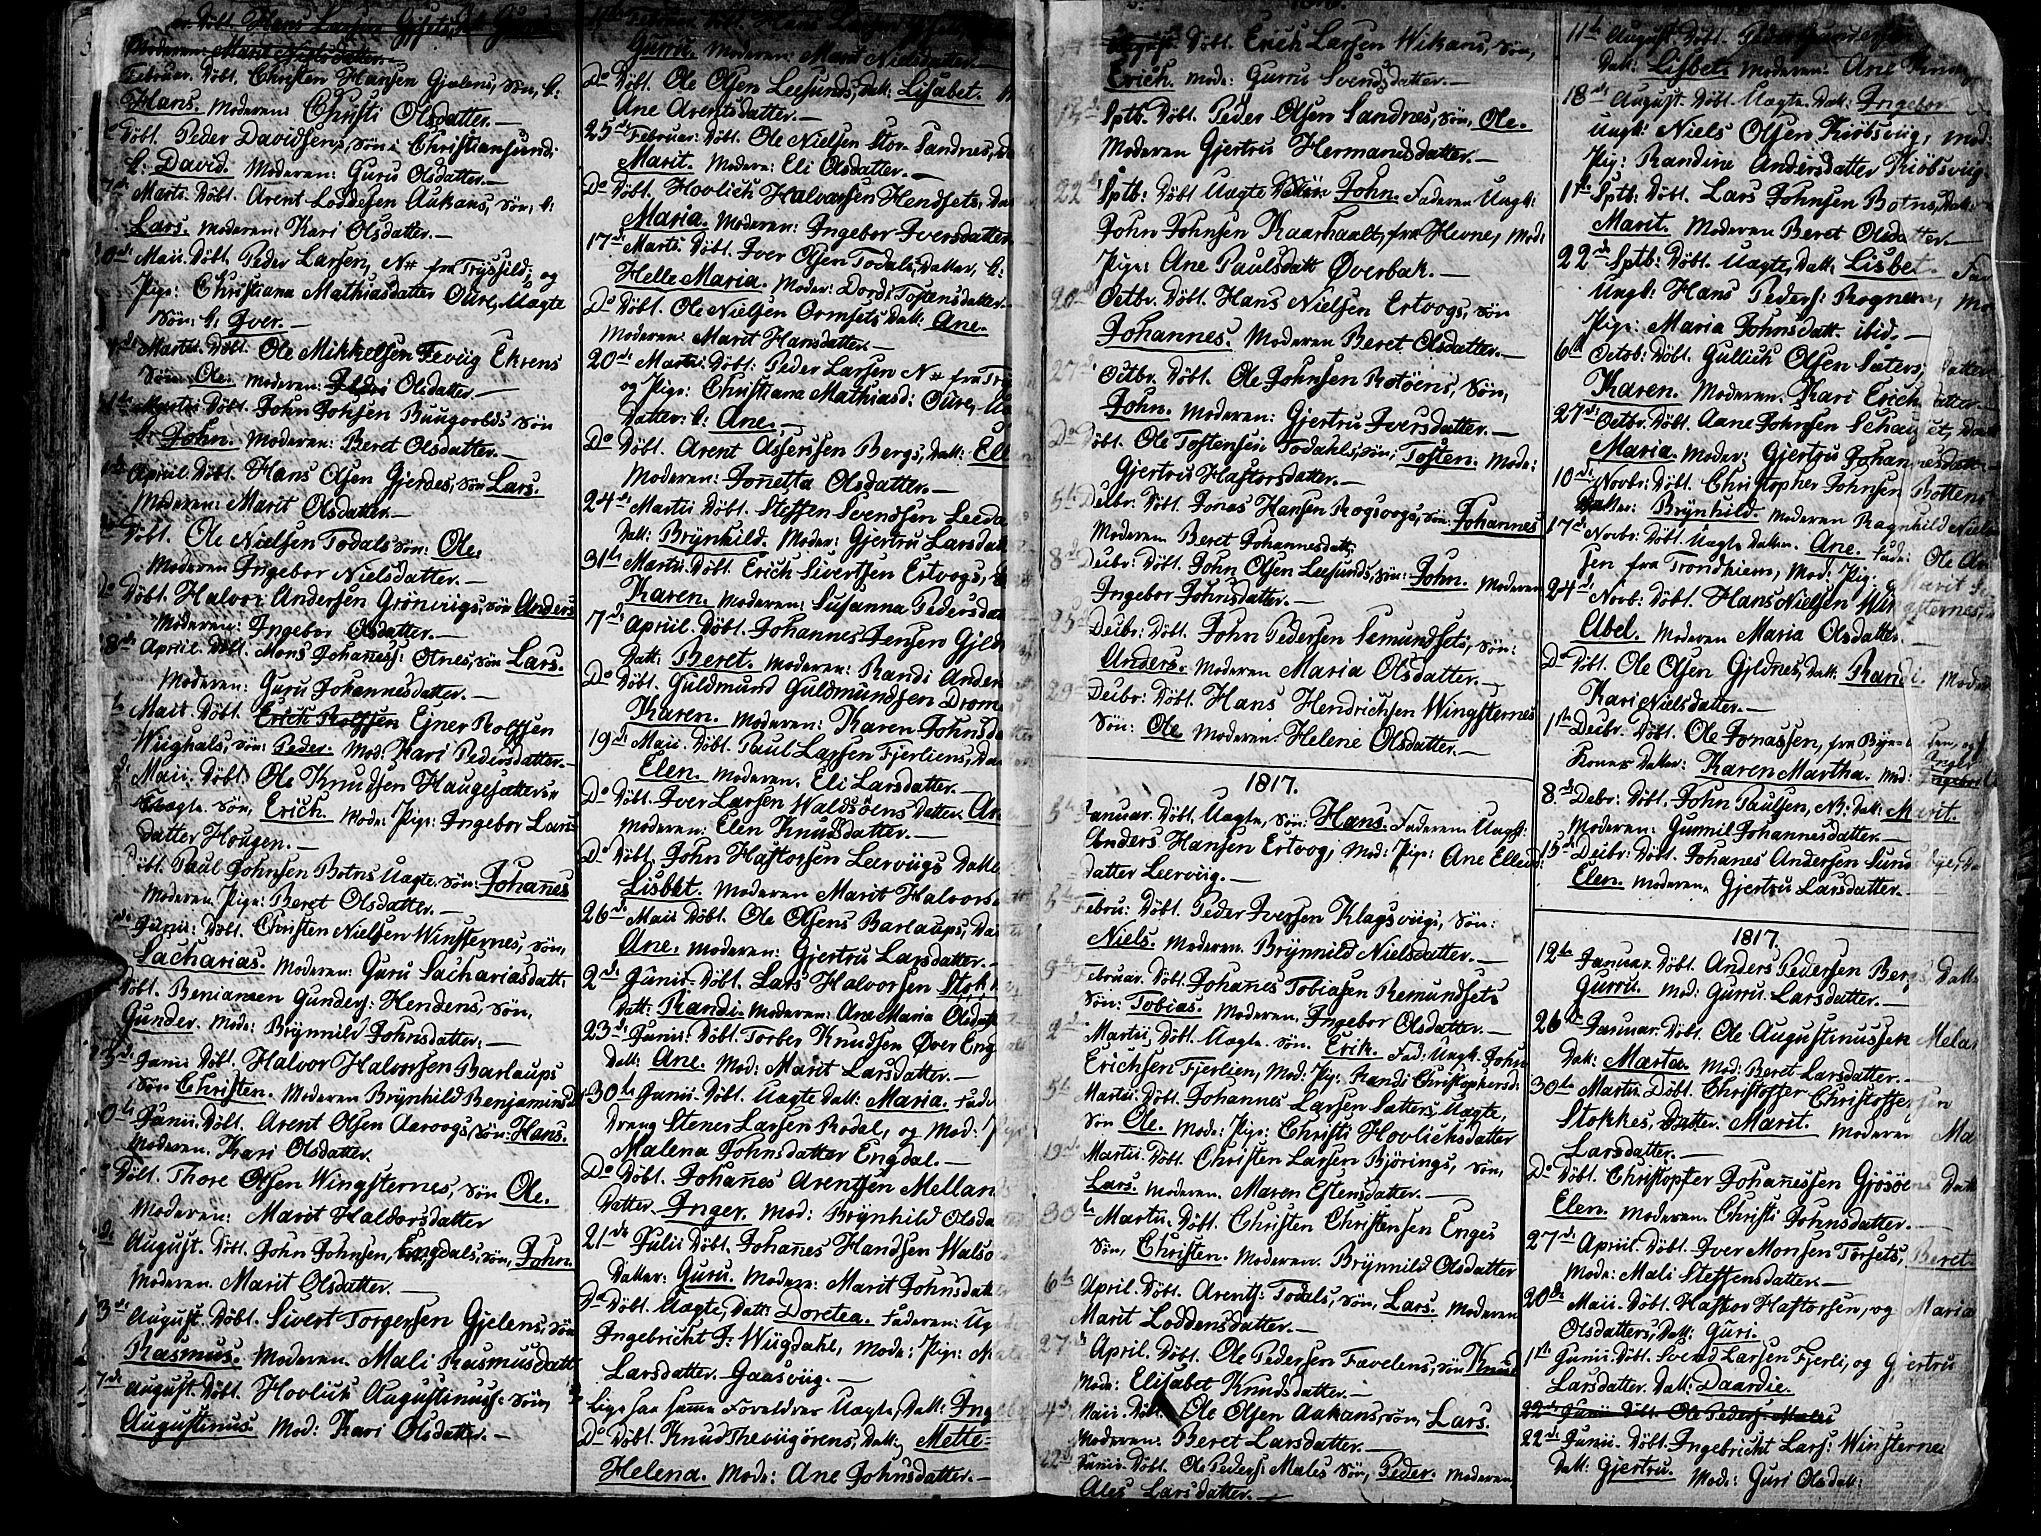 Døbt. Hans Larsen Gjset
Moderen: Marit Nielsdatter.—
Februar. Døbt. Christen Hansen Gjælens, Søn, k:
Hans. Moderen: Christi Olsdatter.—
Døbt. Peder Davidsens, Søn: Christiansund;
k: David. Moderen: Guru Olsdatter.—
7de Marts. Døbt. Arent Loddesen Aukans, Søn, k:
Lars. Moderen: Kari Olsdatter.—
Maii. Døbt. Peder Larsen, N# fra Trysild; og
Pige: Christiana Mathiasdatter Oure, Uægte
Søn: k: Iver.—
Martii. Døbt. Ole Mikkelsen Tevüg Ekrens
Søn: Ole. Moderen: Olsdatter.—
Martii Døbt. John Johsen Baugoolds Søn
k: John. Moderen: Beret Olsdatter.—
April. Døbt. Hans Olsen Gjerdes, Søn Lars.
Moderen: Marit Olsdatter.—
Døbt. Ole Nielsen Todals Søn: Ole.
Moderen Ingebor Nielsdatter.—
Do Døbt. Halvor Andersen Grönvigs, Søn Anders
Moderen: Ingebor Olsdatter.—
8de April. Døbt. Mons Johanes: Otnes, Søn Lars.
Moderen: Guru Johannesdatter.—
Maii. Døbt. Erich Rolfsen Ejner Rolfsen
Wüghals, Søn: Peder. Mod. Kari Pedersdatter.—
Maii. Døbt. Ole Knudsen Haugesætters
Uægte Søn, Erich. Mod: Pige: Ingebor Lars
datter Hougen.—
Døbt. Paul Johnsen Botns Uægte Søn: Johanes
Moderen Pige: Beret Olsdatter.—
Junii: Døbt. Christen Nielsen Winsternes, Søn,
Sacharias. Moderen: Guru Sachariasdatt:
Døbt. Beniamen Gunders: Hendens, Søn,
Gunder. Mod: Brynnild Johnsdatter.—
Junii Døbt. Halvor Halvorsen Barlaups
Søn Christen. Moderen Brÿnhild Benjaminsd
Junii. Døbt. Arent Olsen Aarvogs, Søn: Hans.
Moderen. Kari Olsdatter.
Døbt. Thore Olsen Wingsternes, Søn Ole.
Moderen: Marit Haldorsdatter
August. Døbt. John Johnsen, Engdals, Søn, John.
Moderen Marit Olsdatter.—
3de August. Døbt. Sivert Torgersen Gjelens, Søn
Rasmus. Moderen. Mali Rasmusdatt
7de August. Døbt. Hovlich Augustinuss: Søn,
Augustinus. Mod: Kari Olsdatter.—
Gurru. Moderen: Marit Nielsdatter.—
Do Døbt. Ole Olsen Leesunds, Datt: Lisabet.
Ane Arentsdatter.—
25de Februar: Døbt. Ole Nielsen Stor Sandnes,
Marit. Modern: Eli Olsdatter.—
Do Døbt. Hovlich Halvorsen Hendsets, Dat
Maria. Moderen: Ingebor Iversdatter
17de Marti Døbt. Iver Olsen Todals, Datter, k:
Helle Maria. Moder: Dordi Tostensdatter
Do Døbt. Ole Nielsen Ormsets Datt: Ane.
Moderen: Marit Hansdatter.—
20de Martii Døbt: Peder Larsen N# fra Try
og Pige: Christiana Mathiasd: Oure,
Datter: k: Ane.—
Do Døbt. Arent Assersen Bergs, Datt: Ell
Moderen: Jonetta Olsdatter.—
24de Martii Døbt. Steffen Svendsen Leeda
Datt: Brÿnhild. Moder: Gjertru Larsdatt
31te Martii. Døbt. Erich Sivertsen Ertvogs,
Karen. Moderen: Susanna Pedersda
7de April. Døbt. Johannes Jensen Gjld
Datt: Beret. Moderen: Randi Ander
Do Døbt. Guldmund Guldmundsen Drom
Karen. Moderen: Karen Johnsda
19de Maii. Døbt. Paul Larsen Fjerliens, Da
Elen. Moderen. Eli Larsdatter.—
Do Døbt. Iver Larsen Waldsøens Datter An
Moderen: Elen Knudsdatter.—
Do Døbt. John Haftorsen Leervügs Datte
Lisbet. Moderen Marit Halvors
26de Maii Døbt. Ole Olsens Barlaups, Da
Ane. Moderen: Gjertru Larsdatter.—
2de Junii. Døbt. Lars Halvorsen Stokke
Datt: Randi. Moderen: Ane Maria Olsdatt
23de Junii: Døbt. Torber Knudsen Øver Eng
Datt: Ane. Mod: Marit Larsdatter.—
30te Junii. Døbt. Uægte Datt: Maria. Fade
Dreng Stener Larsen Rodal, og Mod: Pige
Malena Johnsdatter Engdal.—
Do Døbt. Johanes Arentsen Melland
Datter. Inger. Mod: Brÿnhild Olsda
21de Julii Døbt. Johanes Handsen Walso
Datter: Guru. Moder: Marit Johnsdatt
Do Døbt. Uægte, Datt: Doretea. Faderen: Ug
Ingebricht J: Wügdahl, Mod: Pige: Mal
Larsdatter Gaasvüg.—
Ligesaa samme Foreldres Uægte, Datt: Ing
Do Døbt. Knud Thevügörens, Datt: Mette
Helena. Mod: Ane Johnsdatter.—
August. Døbt. Erich Larsen Wikans, Søn,
Erich. Mod: Gurru Svendsdatter.—
Sptb. Døbt. Peder Olsen Sandnes, Søn, Ole.
Moderen Gjertru Hermansdatter.—
22de Sptb: Døbt Uægte Søn: John. Faderen Ungk:
John Johnsen Kaarhaalt, fra Hevne, Mod:
Pige: Ane Paulsdatt Øverbak.—
20de Octbr. Døbt. Hans Nielsen Ertvogs, Søn
Johannes. Moderen Beret Olsdatter.—
27de Octbr. Døbt. Ole Johnsen Rotøens, Søn,
John. Moderen: Gjertru Iversdatter.—
Do Døbt. Ole Tostensen Todahls, Søn, Tosten. Mod:
Gjertru Haftorsdatter.—
5te Decbr. Døbt. Jonas Hansen Rogsvogs, Søn Johannes
Moderen Beret Johannesdatt:
8de Decbr: Døbt. John Olsen Leesunds, Søn: John. Moderen
Ingebor Johnsdatter.—
25de Decbr: Døbt. John Pedersen Semundsets, Søn:
Anders. Moderen Maria Olsdatter.—
29de Decbr: Døbt. Hans Hendrichsen Wingsternes
Søn: Ole. Moderen. Helene Olsdatter.—
1817.
Januar. Døbt. Uægte, Søn: Hans. Faderen Ungk:
Anders Hansen Ertvog, Mod: Pige: Ane Ellend:
datter Leervüg.—
Febru: Døbt. Peder Iversen Klagsvügs, Søn:
Niels. Moderen. Brÿnnild Nielsdatter.—
Februar. Døbt. Johanes Tobiasen Remundsets
Søn: Tobias. Moderen. Ingebor Olsdatter.—
2de Martii. Døbt. Uægte. Søn. Erik. Fad: Ungk. John
Erichsen Fjerlien, Mod: Pig: Randi Christophersd:
5te Martii. Døbt. Johannes Larsen Sæters, Uægte,
Søn Ole. Mod: Pige: Christi Hovlichsdatter
19de Martii. Døbt. Christen Larsen Bjørings, Søn,
Lars. Moderen. Maren Estensdatter.—
30te Martii. Døbt. Christen Christensen Enges
Søn, Christen. Moderen. Brynnild Olsdatter
6te April. Døbt. Arents: Todals, Søn, Lars. Moderen
Marit Loddensdatter.—
27de April. Døbt. Ole Pedersen Fævelens, Søn Knud
Mod: Elisabet Knudsdatter.—
4de Maii. Døbt. Ole Olsen Aukans, Søn, Lars.
Moderen: Beret Larsdatter.—
22de Junii. Døbt. Ole Peders: Mæles Søn, Peder. Moderen
Ales Larsdatter.—
11te August Døbt. Peder Gunders
Datt: Lisbet. Moderen: Ane
18de August. Døbt. Uægte Datt: Ingebor
Ungk: Niels Olsen Kiøbsvüg, Mod:
Pig: Randine Andersdatter Kiøbsvüg
1te Sptb: Døbt. Lars Johnsen Botns, Datt:
Marit. Moderen Beret Olsdatter.—
22de Sptb: Døbt. Uægte, Datt: Lisbet. Fad
Ungk: Hans Peders: Rognen, Mod
Pige: Maria Johnsdatt. ibid.—
6te Octob: Døbt. Gullich Olsen Sæters, Datter
Karen. Moderen. Kari Erichsdatter.—
27de Octbr. Døbt. Aane Johnsen Schauset, Datt
Maria. Moder: Gjertru Johannesdatt.—
10de Novbr: Døbt. Christopher Johnsen Bottens
Datter: Brÿnhild. Moderen Ragnhild Niels
17de Novbr: Døbt. Uægte Datter. Ane. Fad: Ole An
sen fra Trondhiem, Mod: Pig: Marit
24de Novb: Døbt. Hans Nielsen Wingsternes,
Abel. Moderen Maria Olsdatter.—
Do Døbt. Ole Olsen Gjldnes, Datt: Randi. Moder
Kari Nielsdatter.—
1te Decbr. Døbt. Ole Jonassen, fra
Kones Datter: Karen Martha. Mod: Ingebor
8de Debr: Døbt. John Paulsen, N#: Datt: Marit.
Moderen: Gunnil Johannesdatter.—
15de Decbr: Døbt. Johanes Andersen Sund
Elen. Moderen. Gjertru Larsdatter.—
1817.
12te Januar. Døbt. Anders Pedersen Bergs Datt
Gurru. Mod: Gurru Larsdatter.—
26de Januar. Døbt. Ole Augustinussen Melan
Datt: Martia. Mod: Beret Larsdatter.—
30te Martii. Døbt. Christoffer Christoffersen
Stokkes, Datter. Marit. Moderen Ma
Larsdatter.—
Do Døbt. Christopfer Johanessen Gjøsøens Datt
Elen. Moderen. Christi Johnsdatter.—
27de April. Døbt. Iver Monsen Torsets, Beret.
Mod: Mali Steffensdatter.—
20de Maii. Døbt. Haftor Haftorsen, og Maria
Olsdatters, Datt: Guri.
1te Junii. Døbt. Svend Larsen Fjerli, og Gjertru
Larsdatter. Datt: Daardie.
22de Junii Døbt. Ole Peders: Mæles
22de Junii. Døbt. Ingebricht Lars: Winsterne
Datt: Gjertru. Mod: Guri Olsdatt: